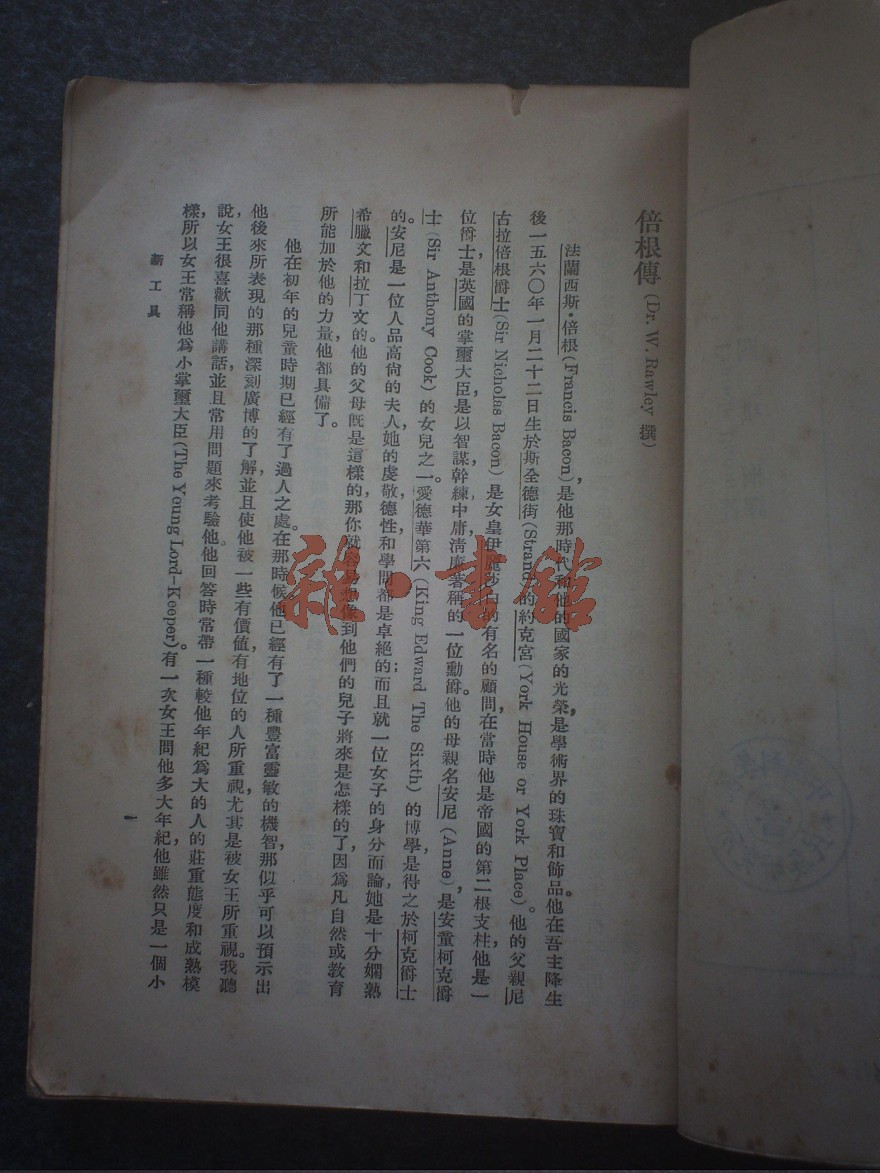 倍根傳(Dr. W. Rawley 撰)
法蘭西斯·倍根(Francis Bacon),是他那時代和他的國家的光榮,是學術界的珠寶和飾品。他在吾主降生
後一五六〇年一月二十二日生於斯全德街(Strand)的約克宮(York House or York Place)。他的父親尼
古拉倍根爵士(Sir Nicholas Bacon)是女皇伊麗莎白的有名的顧問,在當時他是帝國的第二根支柱,他是一
位爵士,是英國的掌璽大臣,是以智謀幹練中庸清廉著稱的一位勳爵。他的母親名安尼(Anne),是安董柯克爵
士(Sir Anthony Cook)的女兒之一。愛德華第六(King Edward The Sixth)的博學,是得之於柯克爵士
的。安尼是一位人品高尚的夫人,她的虔敬,德性和學問都是卓絕的;而且就一位女子的身分而論,她是十分嫻熟
希臘文和拉丁文的。他的父母旣是這樣的,那你就容易想像到他們的兒子將來是怎樣的了,因爲凡自然或教育
所能加於他的力量,他都具備了。
他在初年的兒童時期已經有了過人之處。在那時候他已經有了一種豐富靈敏的機智,那似乎可以預示出
他後來所表現的那種深刻廣博的了解,並且使他被一些有價值有地位的人所重視,尤其是被女王所重視。我聽
說,女王很喜歡同他講話,並且常用問題來考驗他。他回答時常帶一種較他年紀爲大的人的莊重態度和成熟模
樣,所以女王常稱他爲小掌璽大臣(The Young Lord-Keeper)。有一次女王問他多大年紀,他雖然只是一個小
新工具
一
雜·書館